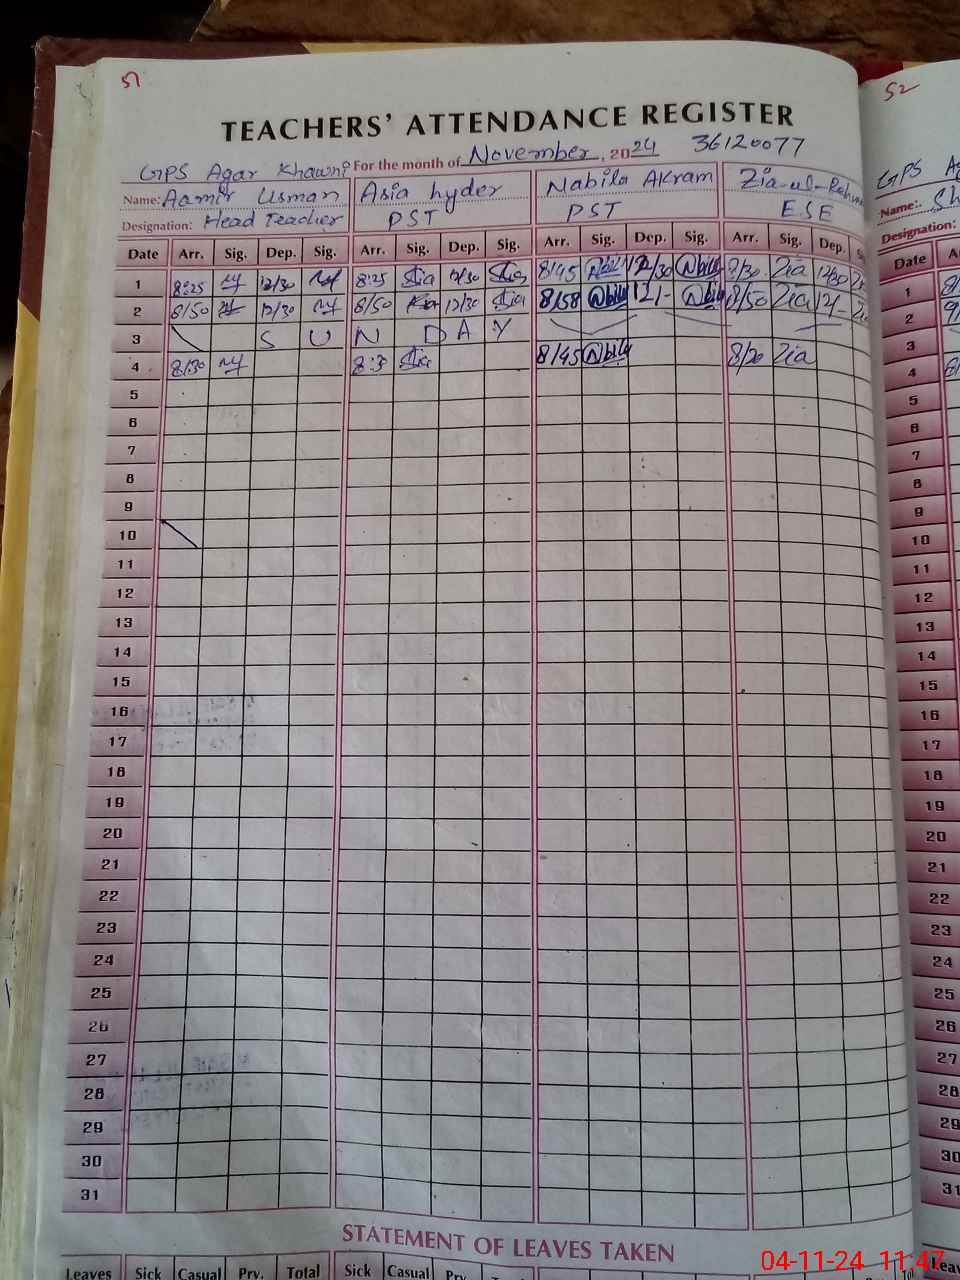 51
52
TEACHERS' ATTENDANCE REGISTER
GPS Agar Khawni For the month of November, 2024 36120077
Name: Aamir Usman Asia hyder Nabila Akram Zia-ul-Rehm
Designation: Head Teacher PST PST ESE
Name:. Sh
Designation:
Date Arr. Sig. Dep. Sig. Arr. Sig. Dep. Sig. Arr. Sig. Dep. Sig. Arr. Sig. Dep. Date
1 8:25 12/30 8:25 12/30 8/45 Nbila 12/30 Nbila 8/30 Zia 12/30 1
2 8/50 12/30 8/50 12/30 8/58 Nbila 12/- Nbila 8/50 Zia 12/- 2
3 S U N D A Y 3
4 8/30 8:3 8/45 Nbila 8/20 Zia 4
5 5
6 6
7 7
8 8
9 9
10 10
11 11
12 12
13 13
14 14
15 15
16 16
17 17
18 18
19 19
20 20
21 21
22 22
23 23
24 24
25 25
26 26
27 27
28 28
29 29
30 30
31 31
STATEMENT OF LEAVES TAKEN
Leaves Sick Casual Prv. Total Sick Casual Prv.
04-11-24 11:47